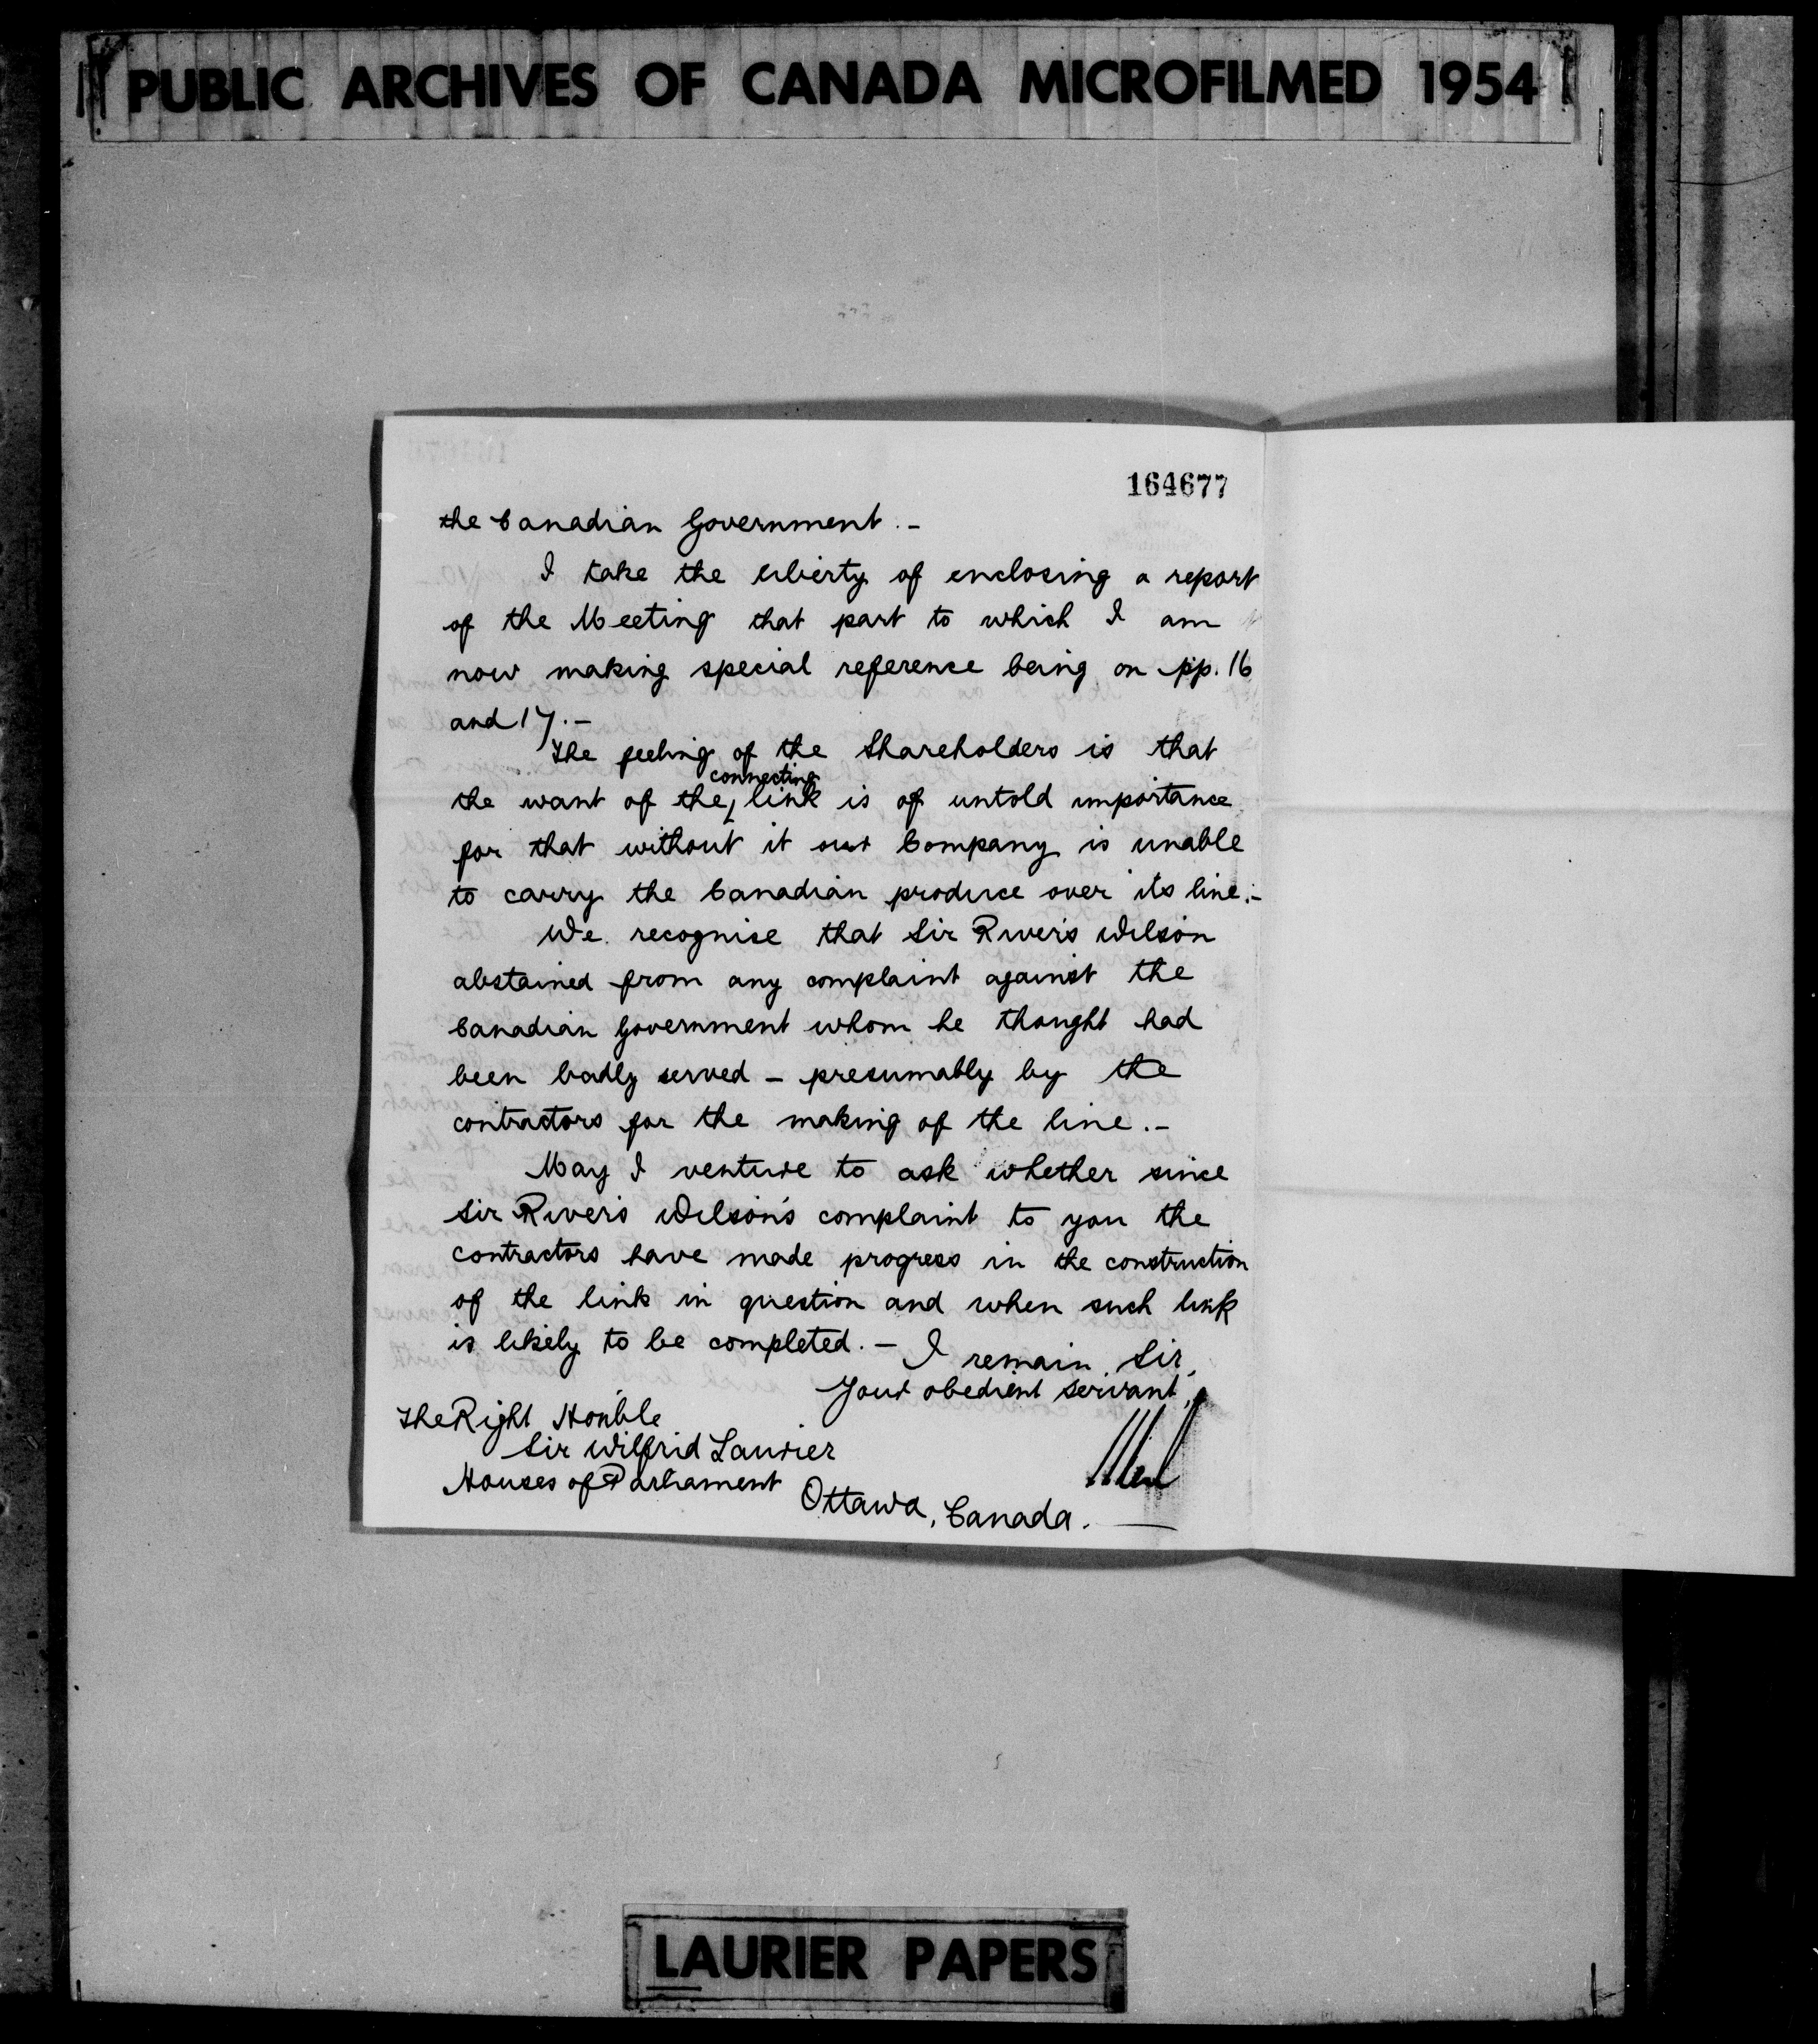 PUBLIC ARCHIVES OF CANADA MICROFILMED 1954
164677
the Canadian Government.-
I take the liberty of enclosing a report
of the Meeting that part to which I am
now making special reference being on pp. 16
and 17.-
The feeling of the Shareholders is that
connecting
the want of the link is of untold importance
for that without it our Company is unable
to carry the Canadian produce over its line.-
We recognise that Sir Rivers Wilson
abstained from any complaint against the
Canadian Government whom he thought had
been badly served - presumably by the
contractors for the making of the line.-
May I venture to ask whether since
Sir Rivers Wilson's complaint to you the
contractors have made progress in the construction
of the link in question and when such link
is likely to be completed.- I remain, Sir,
Your obedient servant,
The Right Hon'ble
Sir Wilfrid Laurier
Houses of Parliament
Ottawa, Canada.
LAURIER PAPERS